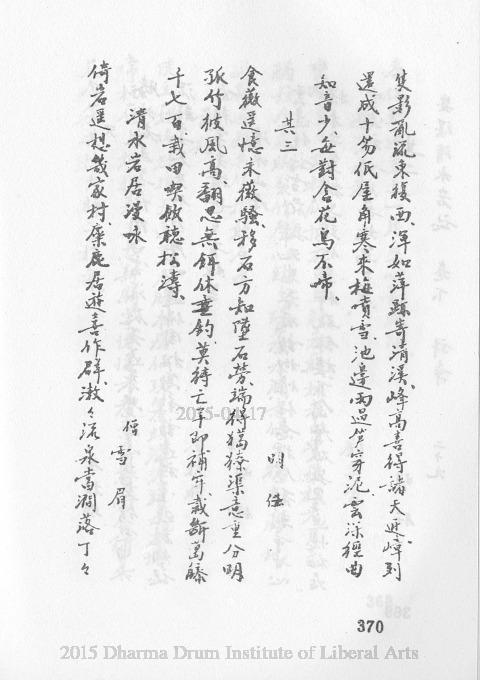 隻影亂流東復西、渾如萍跡寄清溪、峰高喜得諸天邇、嶂列
還成十笏低、屋角寒來梅噴雪、池邊雨過笋穿泥、雲深徑曲
知音少、每對含花鳥不啼、
其三
明 伍
食薇遥憶未薇騷、移石方知墮石勞、端得獦獠渠意重、分明
孤竹彼風高、翻思無餌休垂釣、莫待亡羊即補牢、截斷葛藤
千七百、栽田喫飯聽松濤、
清水岩居漫咏
僧 雪 眉
倚岩遥想幾家村、麋鹿居遊喜作群、潄々流泉當澗落、丁々
370
2015-04-17
2015 Dharma Drum Institute of Liberal Arts